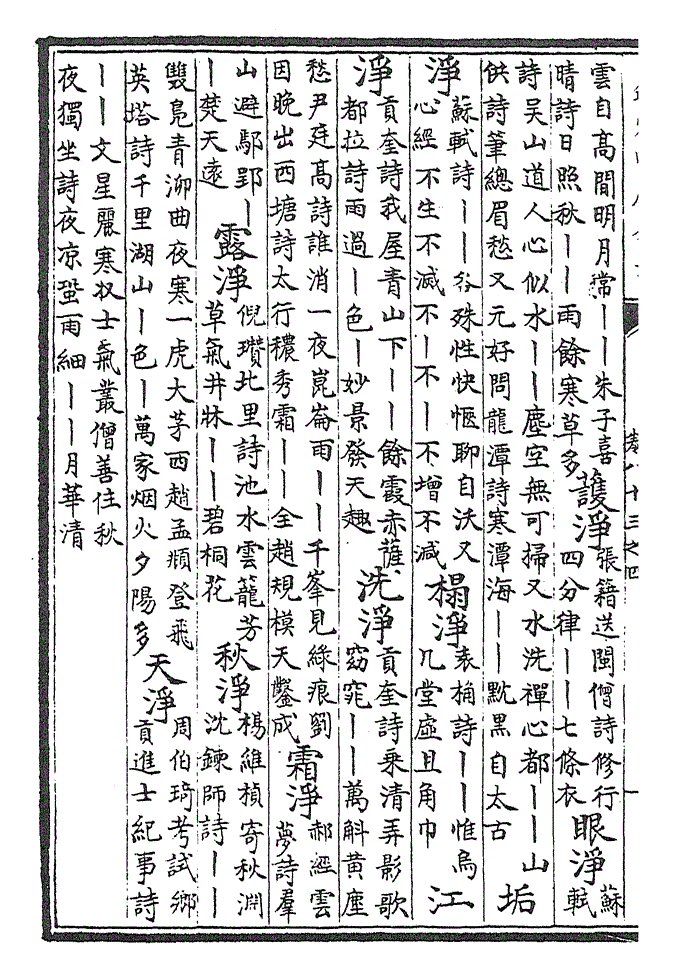 雲自高間明月常｜｜朱子喜
晴詩日照秋｜｜雨餘寒草多
護淨
張籍送閩僧詩修行
四分律｜｜七條衣
眼淨
蘇
軾
詩吳山道人心似水｜｜塵空無可掃又水洗禪心都｜｜山
供詩筆總眉愁又元好問龍潭詩寒潭海｜｜黙黑自太古
垢
淨
蘇軾詩｜｜各殊性快愜聊自沃又
心經不生不滅不｜不｜不增不減
榻淨
袁桷詩｜｜惟烏
几堂虛且角巾
江
淨
貢奎詩我屋青山下｜｜餘霞赤薩
都拉詩雨過｜色｜妙景發天趣
洗淨
貢奎詩乘清弄影歌
窈窕｜｜萬斛黄塵
愁尹廷高詩誰消一夜崑崙雨｜｜千峯見綠痕劉
因晚出西塘詩太行穠秀霜｜｜全趙規模天鑿成
霜淨
郝經雲
夢詩羣
山避鄢郢｜
｜楚天遠
露淨
倪瓚北里詩池水雲籠芳
草氣井牀｜｜碧桐花
秋淨
楊維楨寄秋淵
沈鍊師詩｜｜
雙鳧青泖曲夜寒一虎大茅西趙孟頫登飛
英塔詩千里湖山｜色｜萬家烟火夕陽多
天淨
周伯琦考試鄉
貢進士紀事詩
｜｜文星麗寒收士氣叢僧善住秋
夜獨坐詩夜凉螀雨細｜｜月華清